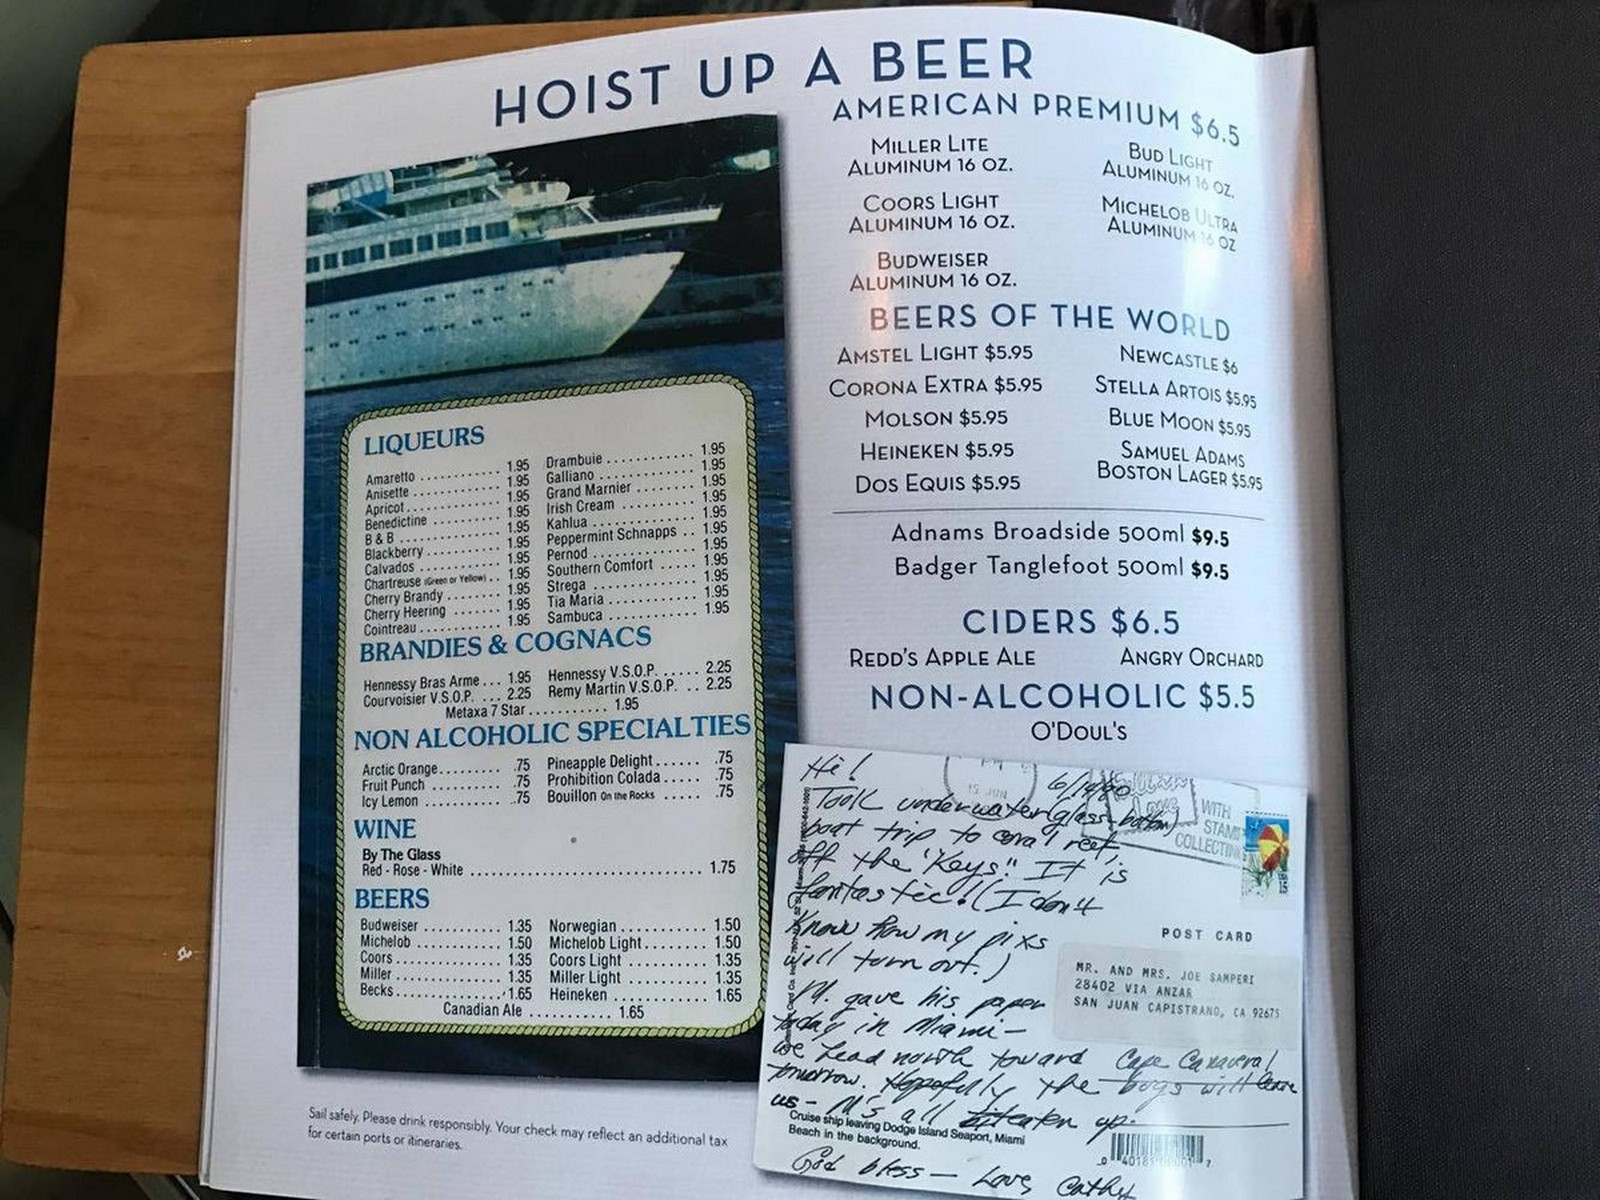 HOIST UP A BEER
AMERICAN PREMIUM $6.5
MILLER LITE
ALUMINUM 16 OZ.
BUD LIGHT
ALUMINUM 16 OZ.
COORS LIGHT
ALUMINUM 16 OZ.
MICHELOB ULTRA
ALUMINUM 16 OZ
BUDWEISER
ALUMINUM 16 OZ.
BEERS OF THE WORLD
AMSTEL LIGHT $5.95
NEWCASTLE $6
CORONA EXTRA $5.95
STELLA ARTOIS $5.95
MOLSON $5.95
BLUE MOON $5.95
HEINEKEN $5.95
SAMUEL ADAMS
BOSTON LAGER $5.95
DOS EQUIS $5.95
Adnams Broadside 500ml $9.5
Badger Tanglefoot 500ml $9.5
CIDERS $6.5
REDD'S APPLE ALE
ANGRY ORCHARD
NON-ALCOHOLIC $5.5
O'DOUL'S
LIQUEURS
Amaretto .......... 1.95
Anisette .......... 1.95
Apricot .......... 1.95
Benedictine .......... 1.95
B & B .......... 1.95
Blackberry .......... 1.95
Calvados .......... 1.95
Chartreuse (Green or Yellow) .. 1.95
Cherry Brandy ........ 1.95
Cherry Heering ....... 1.95
Cointreau .......... 1.95
Drambuie ............ 1.95
Galliano ............ 1.95
Grand Marnier ........ 1.95
Irish Cream .......... 1.95
Kahlua ............ 1.95
Peppermint Schnapps .. 1.95
Pernod ............ 1.95
Southern Comfort ..... 1.95
Strega ............ 1.95
Tia Maria ............ 1.95
Sambuca ............ 1.95
BRANDIES & COGNACS
Hennessy Bras Arme ... 1.95
Hennessy V.S.O.P. ...... 2.25
Courvoisier V.S.O.P. ... 2.25
Remy Martin V.S.O.P. .. 2.25
Metaxa 7 Star .......... 1.95
NON ALCOHOLIC SPECIALTIES
Arctic Orange ......... .75
Pineapple Delight ...... .75
Fruit Punch .......... .75
Prohibition Colada ..... .75
Icy Lemon .......... .75
Bouillon On the Rocks ..... .75
WINE
By The Glass
Red - Rose - White .............................. 1.75
BEERS
Budweiser .......... 1.35
Norwegian ............ 1.50
Michelob .......... 1.50
Michelob Light ........ 1.50
Coors .......... 1.35
Coors Light .......... 1.35
Miller .......... 1.35
Miller Light .......... 1.35
Becks .......... 1.65
Heineken .......... 1.65
Canadian Ale .......... 1.65
Sail safely. Please drink responsibly. Your check may reflect an additional tax
for certain ports or itineraries.
Hi!
Took underwater (glass-bottom)
boat trip to coral reef,
off the "Keys". It is
fantastic! (I don't
know how my pixs
will turn out.)
M. gave his paper
today in Miami-
we head north toward Cape Canaveral
tomorrow. Hopefully the bugs will leave
us - M's all eaten up.
God bless - Love, Cathy
15 JUN
WITH
STAMP
COLLECTING
USA
15
POST CARD
MR. AND MRS. JOE SAMPERI
28402 VIA ANZAR
SAN JUAN CAPISTRANO, CA 92675
Cruise ship leaving Dodge Island Seaport, Miami
Beach in the background.